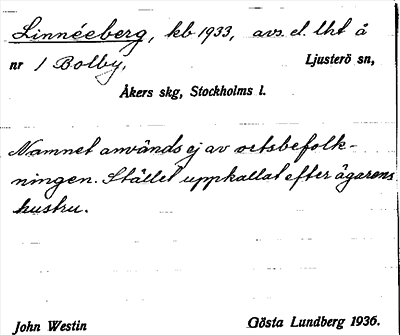 Linnéeberg, kb 1933, avs. el. lht å
nr 1 Bolby, Ljusterö sn,
Åkers skg, Stockholms l.
Namnet används ej av ortsbefolk-
ningen. Stället uppkallat efter ägarens
hustru.
John Westin Gösta Lundberg 1936.